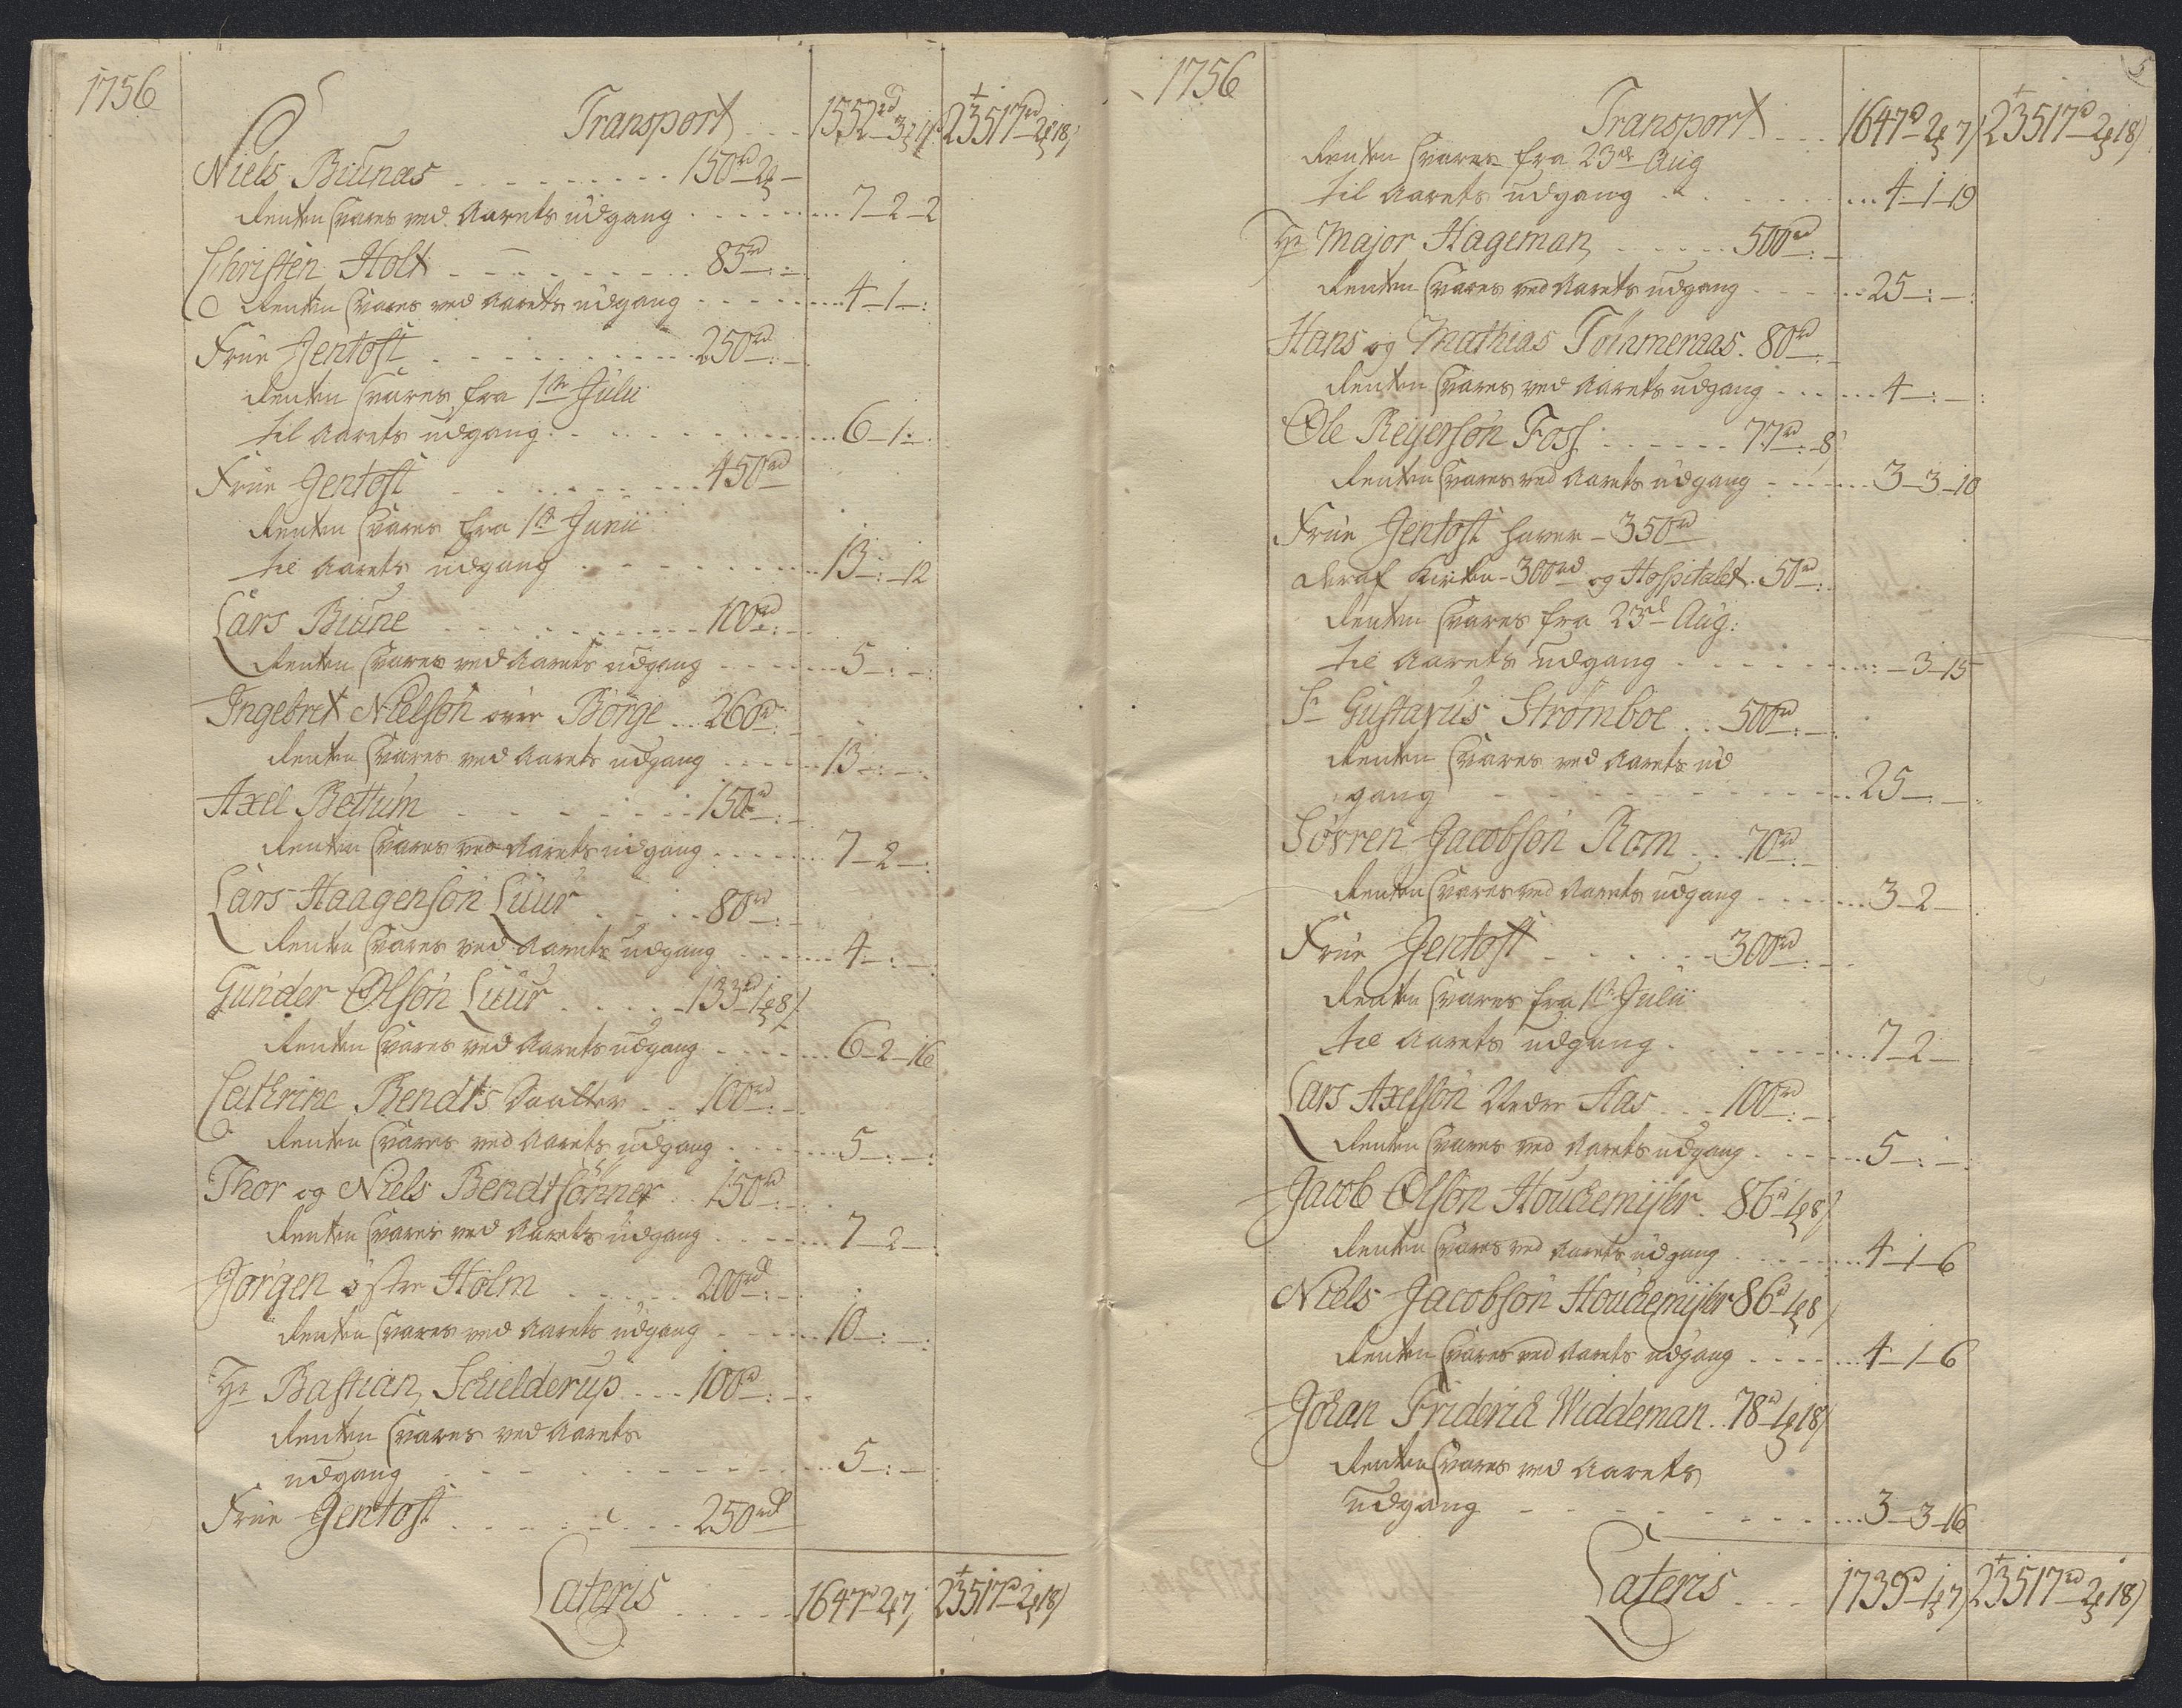 1756
Transport - - - 1552rd 3 23517rd 2 18
Niels Biünas - - - 150rd 2 -
Renten svares ved Aarets udgang - - - 7-2-2
Christen Holt - - - 85rd : -
Renten svares ved Aarets udgang - - - 4-1-:
Frue Jentoft - - - 250rd : -
Renten svares fra 1te Julii
til Aarets udgang - - - 6-1-:
Frue Jentoft - - - 450rd
Renten svares fra 1te Junii
til Aarets udgang - - - 13-:-12
Lars Biüne - - - 100rd : -
Renten svares ved Aarets udgang - - - 5-:-:
Ingebret Nielsøn over Börge - - - 260rd : -
Renten svares ved Aarets udgang - - - 13-:-:
Axel Bettum - - - 150rd : -
Renten svares ved Aarets udgang - - - 7-2-:
Lars Haagensøn Luur - - - 80rd : -
Renten svares ved Aarets udgang - - - 4-:-:
Gunder Olsøn Luur - - - 133rd 1 8
Renten svares ved Aarets udgang - - - 6-2-16
Cathrine Bendts Daatter - - 100rd : -
Renten svares ved Aarets udgang - - - 5-:-:
Thor og Niels Bendtsønner - - 150rd : -
Renten svares ved Aarets udgang - - - 7-2-:
Jørgen østre Holm - - - 200rd : -
Renten svares ved Aarets udgang - - - 10-:-:
Hr Bastian Schielderup - - - 100rd : -
Renten svares ved Aarets
udgang - - - 5-:-:
Frue Jentoft - - - 250rd
Lateris - - - 1647rd 2 7 23517rd 2 18
1756
5
Transport - - - 1647rd 2 7 23517rd 2 18
Renten svares fra 23de Aug
til Aarets udgang - - - 4-1-19
Hr Major Hageman - - - 500rd : -
Renten svares ved Aarets udgang - - - 25-:-:
Hans og Mathias Tømmeraas - 80rd : -
Renten svares ved Aarets udgang - - - 4-:-:
Ole Reijersøn Foss - - - 77rd : 8
Renten svares ved Aarets udgang - - - 3-3-10
Frue Jentoft haver - 350rd
deraf Kirken - 300rd og Hospitalet - 50rd : -
Renten svares fra 23de Aug:
til Aarets udgang - - - :-3-15
Sr Gustavus Strømboe - - 500rd : -
Renten svares ved Aarets ud
gang - - - 25-:-:
Søvren Jacobsøn Rom - - 70rd : -
Renten svares ved Aarets udgang - - - 3-2-:
Frue Jentoft - - - 300rd : -
Renten svares fra 1te Julii
til Aarets udgang - - - 7-2-
Lars Axelsøn Nedre Aas - - - 100rd : -
Renten svares ved Aarets udgang - - - 5-:-:
Jacob Olsøn Houchemijhr - 86rd 1 8
Renten svares ved Aarets udgang - - - 4-1-6
Niels Jacobsøn Houchemijhr 86rd 1 8
Renten svares ved Aarets udgang - - - 4-1-6
Johan Friderich Widdeman - - 78rd 1 18
Renten svares ved Aarets
udgang - - - 3-3-16
Lateris - - - 1739rd 1 7 23517rd 2 18